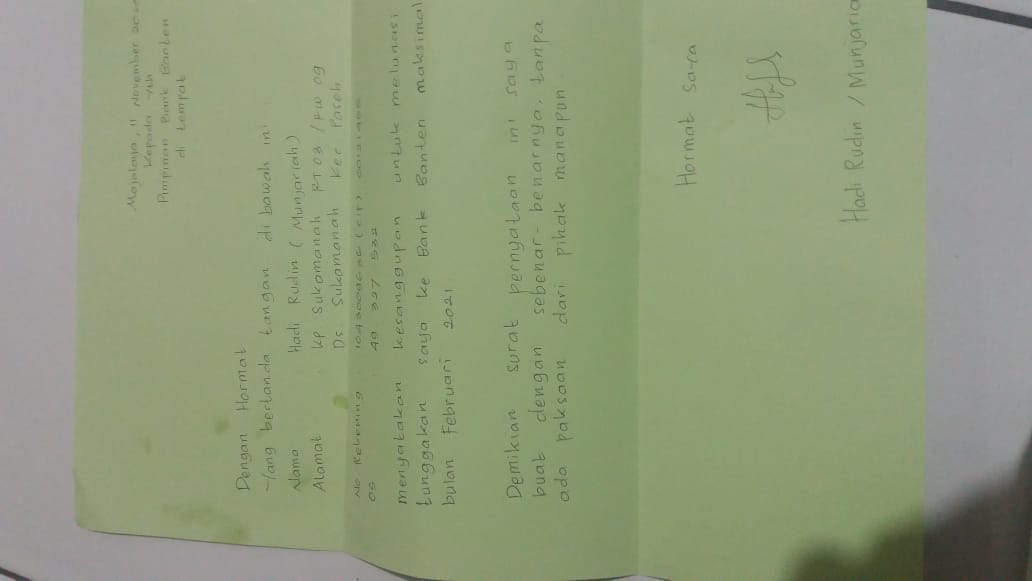 Majalaya, 11 November 2020
Kepada Yth
Pimpinan Bank Banten
di tempat
Dengan Hormat
Yang bertanda tangan di bawah ini :
Nama : Hadi Rudin ( Munjariah )
Alamat : Kp Sukamanah RT 03 / RW 09
Ds Sukamanah Kec Paseh
No Rekening :
OS : 49 397 532
menyatakan kesanggupan untuk melunasi
tunggakan saya ke Bank Banten maksimal
bulan Februari 2021
Demikian surat pernyataan ini saya
buat dengan sebenar-benarnya, tanpa
ada paksaan dari pihak manapun
Hormat saya
Hadi Rudin / Munjariah